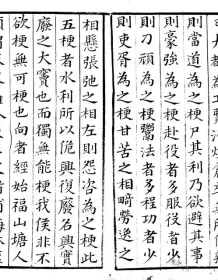 則當道為之梗尸其利乃欲避其事
則豪強為之梗赴役者多服役者少
則刀頑為之梗鬻法者多程功者少
則吏胥為之梗甘苦之相畸勞逸之
相懸張弛之相左則怨咨為之梗此
五梗者水利所以倏興復廢名興實
廢之大竇也而獨無能梗我侯非不
欲梗無可梗也向者經始福山塘人